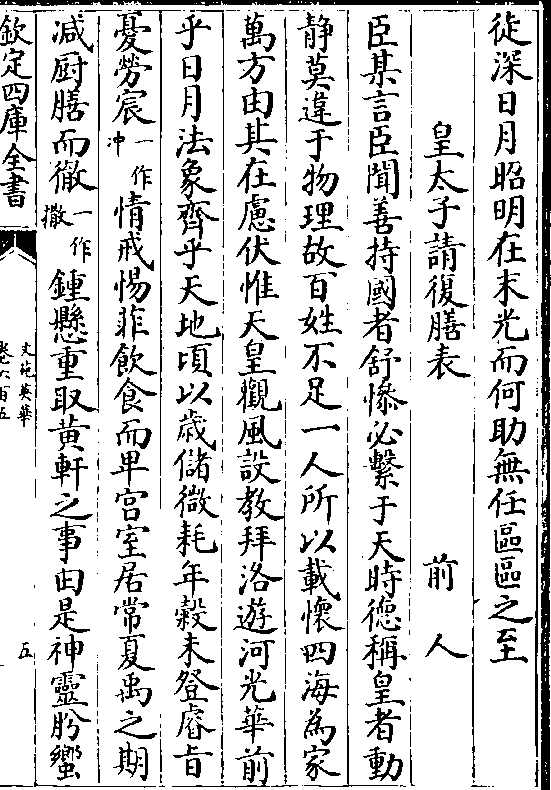 徒深日月昭明在末光而何助無任區區之至
皇太子請復膳表 前人
臣某言臣聞善持國者舒慘必繫于天時德稱皇者動
静莫違于物理故百姓不足一人所以載懷四海為家
萬方由其在慮伏惟天皇觀風設教拜洛遊河光華前
乎日月法象齊乎天地頃以歳儲微耗年榖未登睿旨
憂勞宸一作冲情戒惕菲飲食而卑宫室居常夏禹之期
减厨膳而徹一作撤鍾懸重取黄軒之事由是神靈肸蠁
欽定四庫全書
文苑英華
卷六百五
五